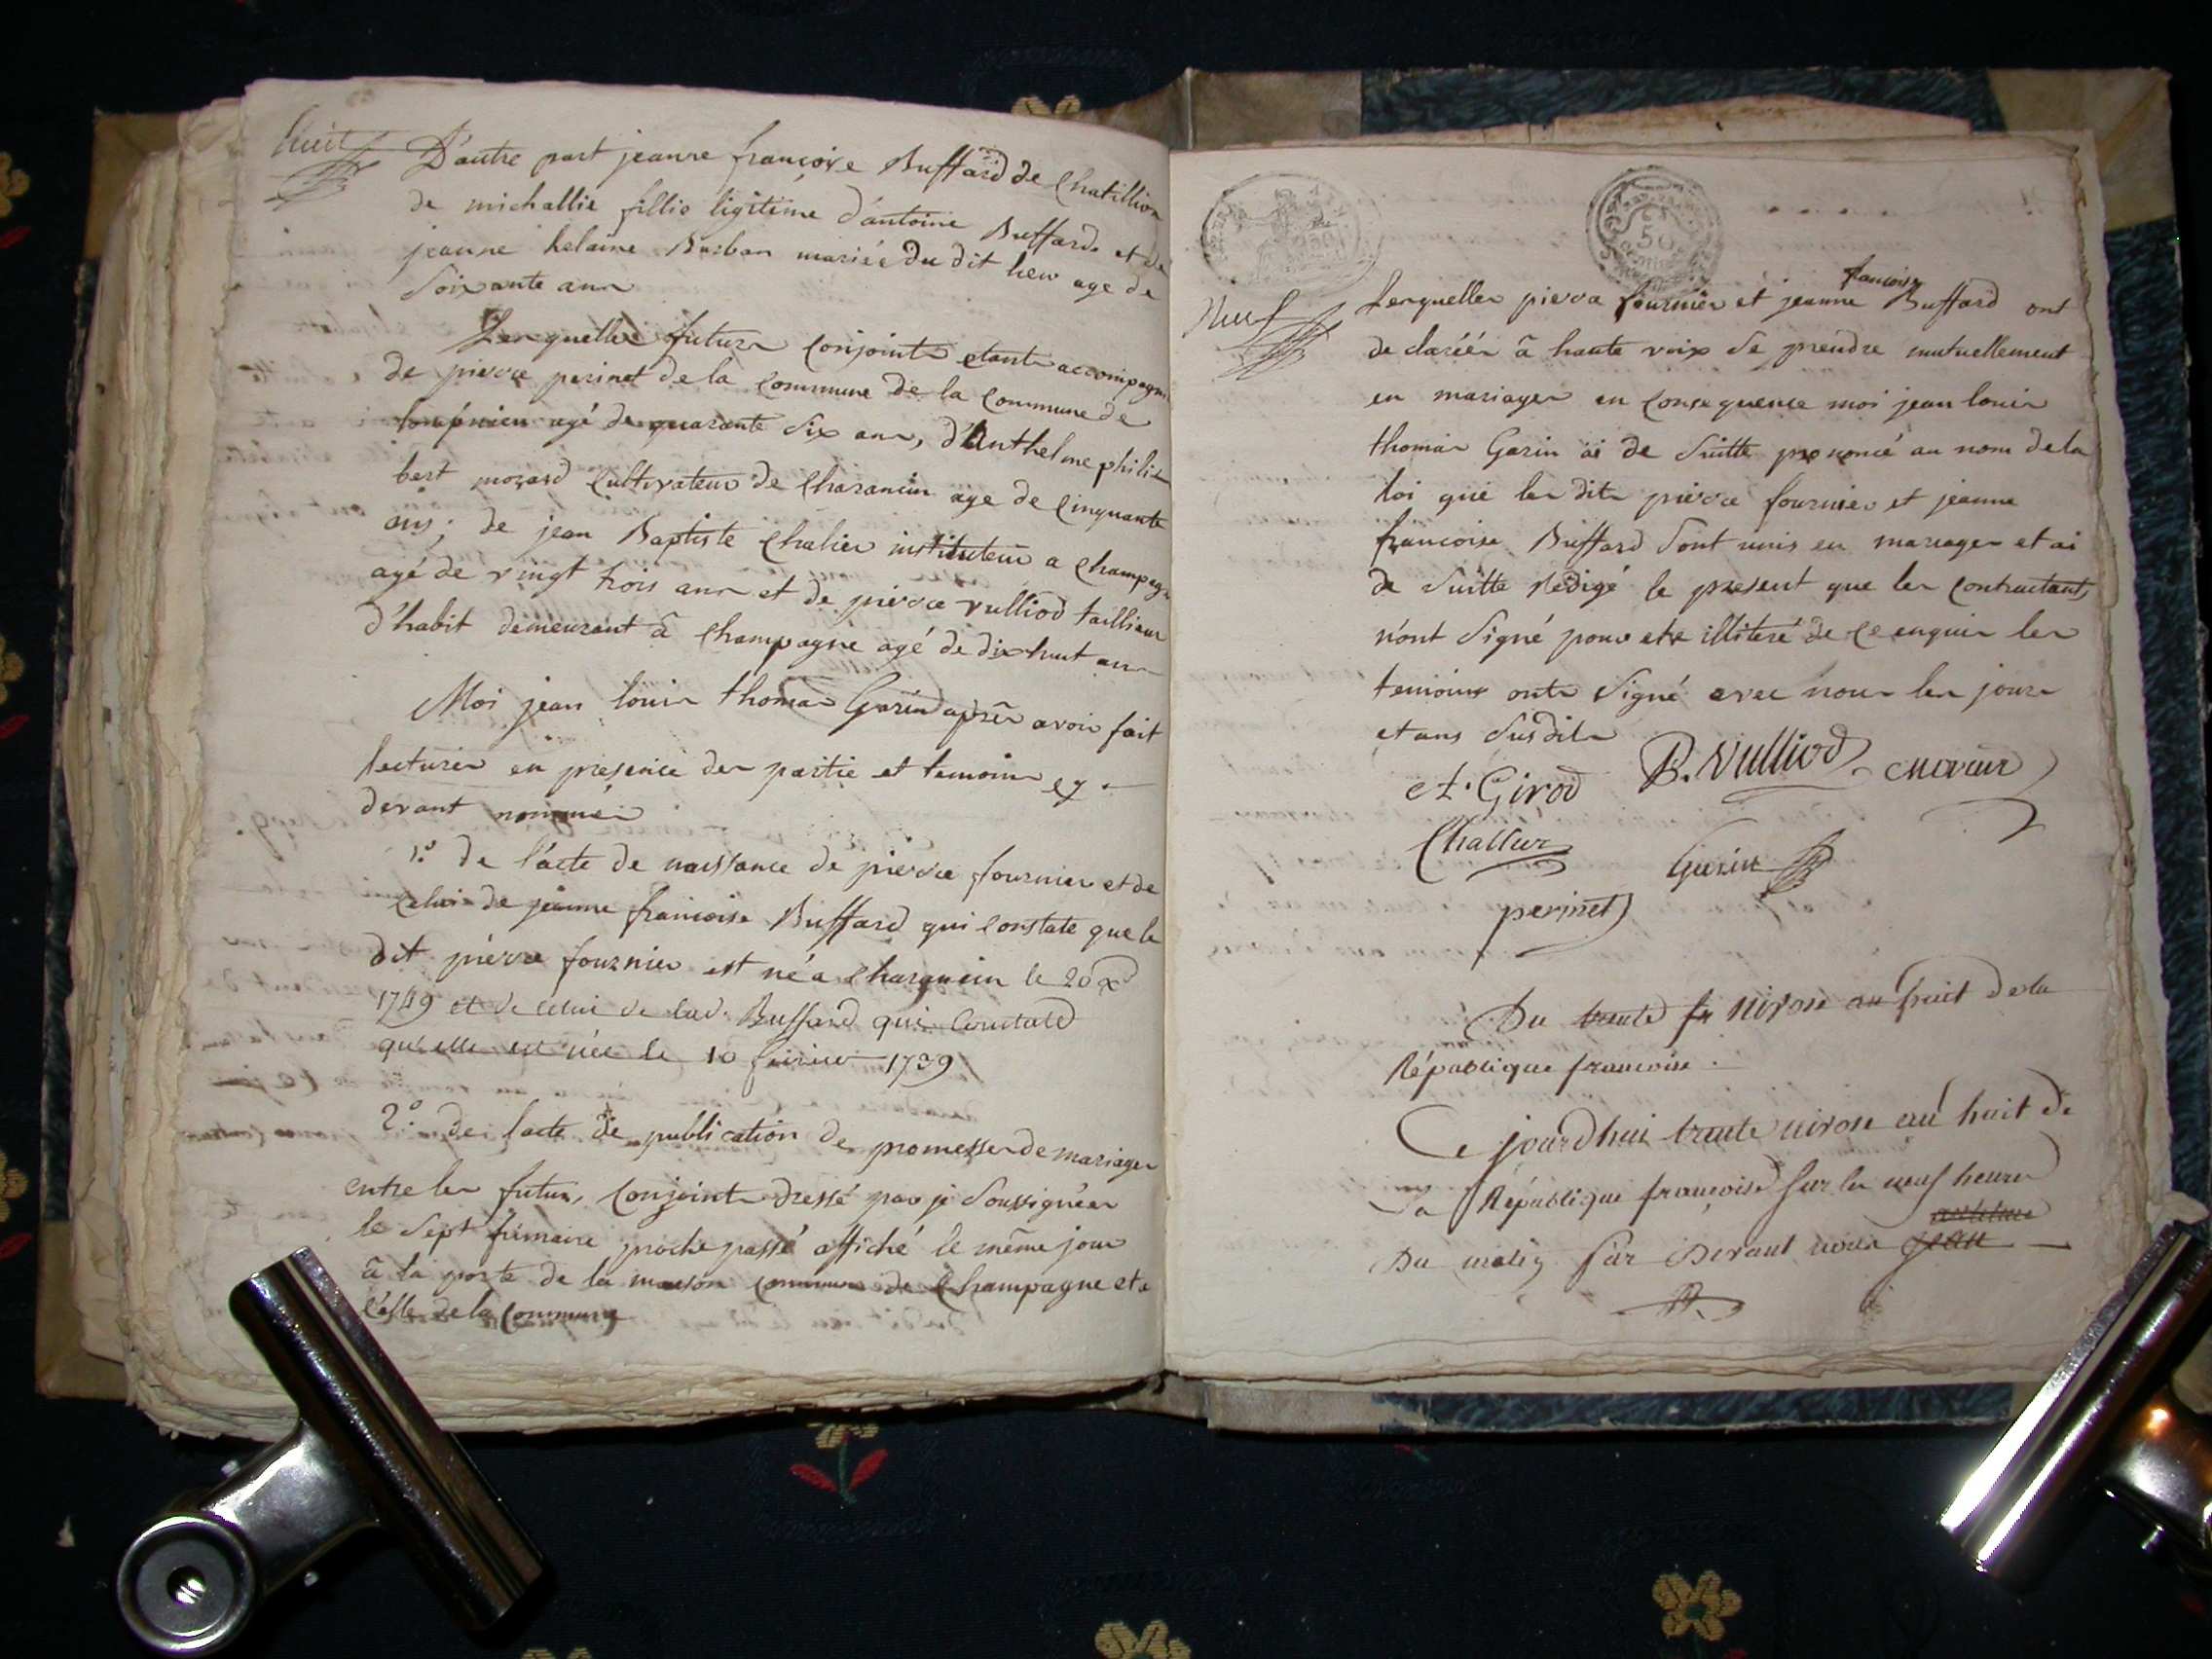 huit
D'autre part jeanne françoise Buffard de Chatillion
de michallie fillie ligitime d'antoine Buffard et de
jeanne helaine Burban mariée du dit lieu age de
Soixante ans
Lesquelles futurs Conjoints etants accompagn
de pierre perinet de la Commune de la Commune de
agé de quarante Six ans, d'Anthelme phili
bert morard Cultivateur de Charancin age de Cinquante
ans; de jean Baptiste Chalier instituteur a Champagn
agé de vingt trois ans et de pierre vulliod taillieur
d'habit demeurant â Champagne agé de dix huit ans
Moi jean louis thomas Garin après avoir fait
lectures en presence des partie et temoins cy
devant nommés
1.º de l'acte de naissance de pierre fournier et de
celui de jeanne francoise Buffard qui Constate que le
dit pierre fournier est né a Charancin le 20
1749 et de celui de lad. Buffard qui Constate
qu'elle est née le 10 fevrier 1739
2.º de lacte de publication de promesses de mariages
entre les futurs Conjoints dressé par je Soussignées
le Sept frimaire proche passé affiché le même jour
â la porte de la maison Commune de Champagne et a
celle de la Commune
50
Neuf
francoise
Lesquelles pierre fournier et jeanne Buffard ont
declarées â haute voix de prendre mutuellement
en mariages en Consequence moi jean louis
thomas Garin ai de Suitte prononcé au nom de la
loi que les dits pierre fournier et jeanne
francoise Buffard Sont unis en mariages et ai
de Suitte Redigé le present que les Contractants
n'ont Signé pour etre illiteré de Ce enquis les
temoins onts Signé avec nous les jours
et ans Susdits
At. Girod B. Vulliod morard
Garin
perinet
Du trente nivose an huit de la
République francoise
Ce jourdhui trente nivose an huit de
La République francoise Sur les neuf heures
Du matin par Devant nous